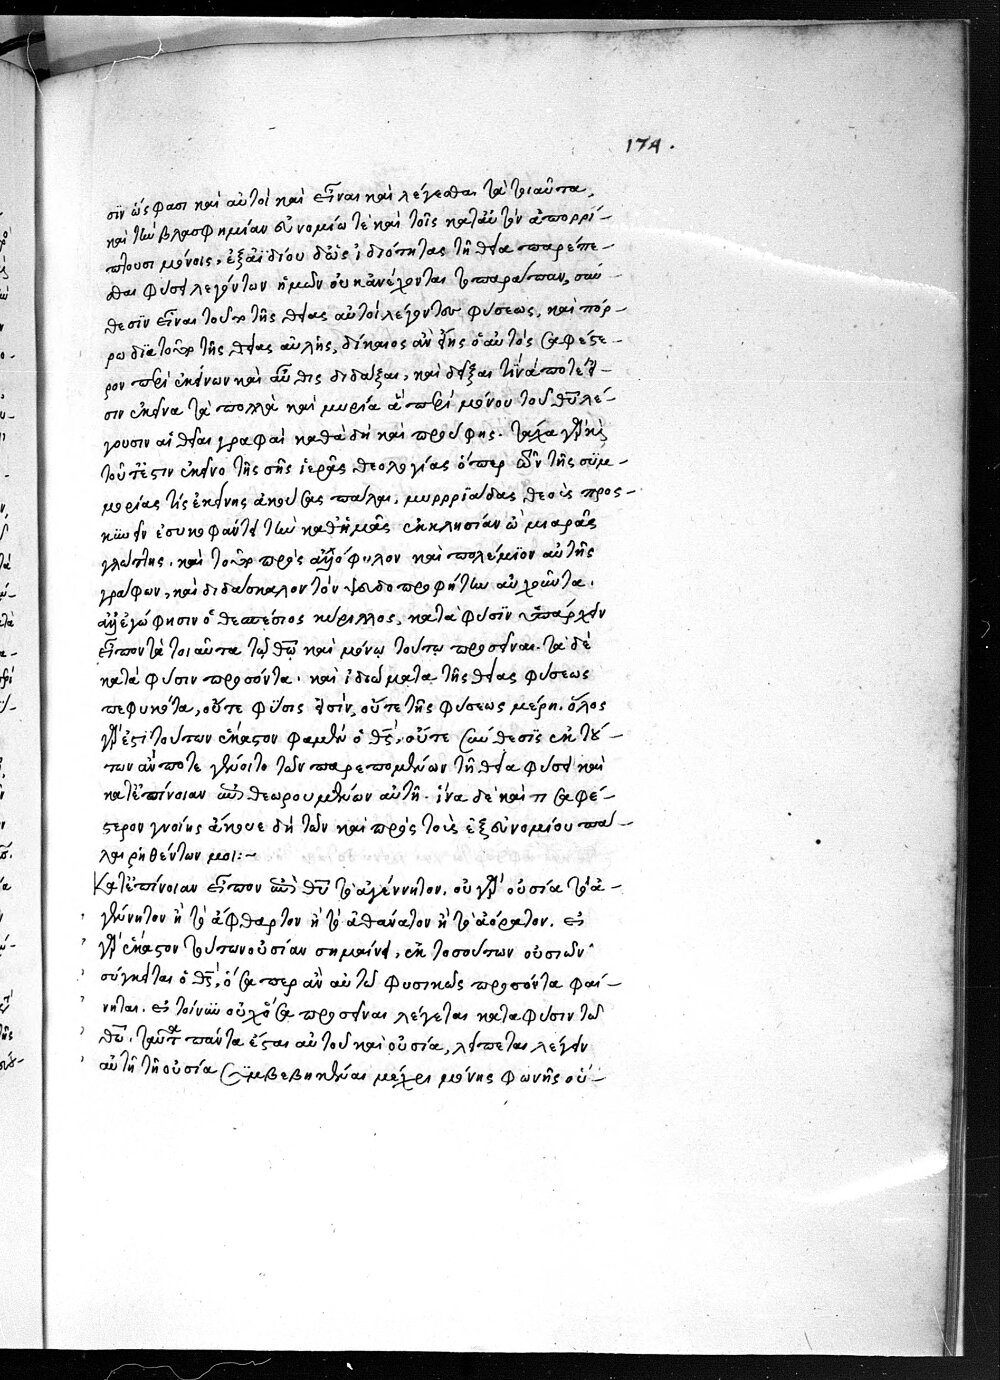 174.
σϊν ὥς φασι καὶ αὐτοὶ καὶ εἶναι καὶ λέγεσθαι τὰ τοιαῦτα,
καὶ τὴν βλασφημίαν εὐνομίω τὲ καὶ τοῖς κατ' αὐτὸν ἀπορρί-
πτουσι μόνοις, ἐξ ἀϊδίου δὲ ὡς ἰδιότητας τῆ θεία παρέπε-
σθαι φύσει λεγόντων ἡμῶν οὐκ ἀνέχονται τὸ παράπαν, συν
θεσϊν εἶναι τοῦτο τῆς θείας αὐτοὶ λέγοντες φύσεως, καὶ πόρ-
ρω διὰ τοῦτο τῆς θείας αὐλῆς, δίκαιος ἂν εἴης ὁ αὐτὸς σαφέστε-
ρον περὶ ἐκείνων καὶ αὖθις διδάξαι, καὶ δεῖξαι τίνά ποτέ εἰ-
σιν ἐκεῖνα τὰ πολλὰ καὶ μυρία ἃ περὶ μόνου τοῦ θυ λέ-
γουσιν αἱ θεῖαι γραφαὶ καθὰ δὴ καὶ προύφης. τάχα γὰρ καὶ
τοῦτ' ἔστιν ἐκεῖνο τῆς σῆς ἱερᾶς θεολογίας ὅπερ ὢν τῆς συμ-
μορίας τῆς ἐκείνης ἀκούσας πάλαι, μυρρϊάδας θεοὺς προς-
κυνεῖν ἐσυκοφάντει τὴν καθ' ἡμᾶς ἐκκλησίαν ὢ μιαρᾶς
γλώττης. καὶ τοῦτο πρὸς ἀλλόφυλον καὶ πολέμϊον αὐτῆς
γράφων, καὶ διδάσκαλον τὸν ψευδοπροφήτην αὐχοῦντα.
ἀλλ' ἐγώ φησιν ὁ θεσπέσιος κύριλλος, κατὰ φύσϊν ὑπάρχειν
εἶπον τὰ τοιαῦτα τῷ θῷ καὶ μόνῳ τούτῳ προσεῖναι. τὰ δὲ
κατὰ φύσιν προσόντα. καὶ ἰδιώματα τῆς θείας φύσεως
πεφυκότα, οὔτε φύσις εἰσὶν, οὔτε τῆς φύσεως μέρη. ὅλος
γὰρ ἐπὶ τούτων ἕκαστον φαμὲν ὁ θς, οὔτε σύνθεσϊς ἐκ τού-
των ἄν ποτε γένοιτο τῶν παρεπομένων τῆ θεία φύσει καὶ
κατ' ἐπίνοιαν περὶ θεωρουμένων αὐτῆ. ἵνα δὲ καὶ τι σαφέ-
στερον γνοίης ἄκουε δὴ τῶν καὶ πρὸς τοὺς ἐξ εὐνομίου πά-
λαι ῥηθέντων μοι:~
Κατ' ἐπίνοιαν εἶπον περὶ θυ τὸ ἀγέννητον. οὐ γὰρ οὐσία τὸ ἀ-
γέννητον ἢ τὸ ἄφθαρτον ἢ τὸ ἀθάνατον ἢ τὸ ἀόρατον. εἰ
γὰρ ἕκαστον τούτων οὐσίαν σημαίνει, ἐκ τοσούτων οὐσιῶν
σύγκειται ὁ θς, ὅσα περ ἂν αὐτῶ φυσικῶς προσόντα φαί-
νηται. εἰ τοίνυν οὐχ ὅσα προσεῖναι λέγεται κατὰ φύσιν τῶ
θῶ. ταῦτα πάντα ἔσται αὐτοῦ καὶ οὐσία, λείπεται λέγειν
αὐτῆ τῆ οὐσία συμβεβηκέναι μέχρι μόνης φωνῆς οὐ-